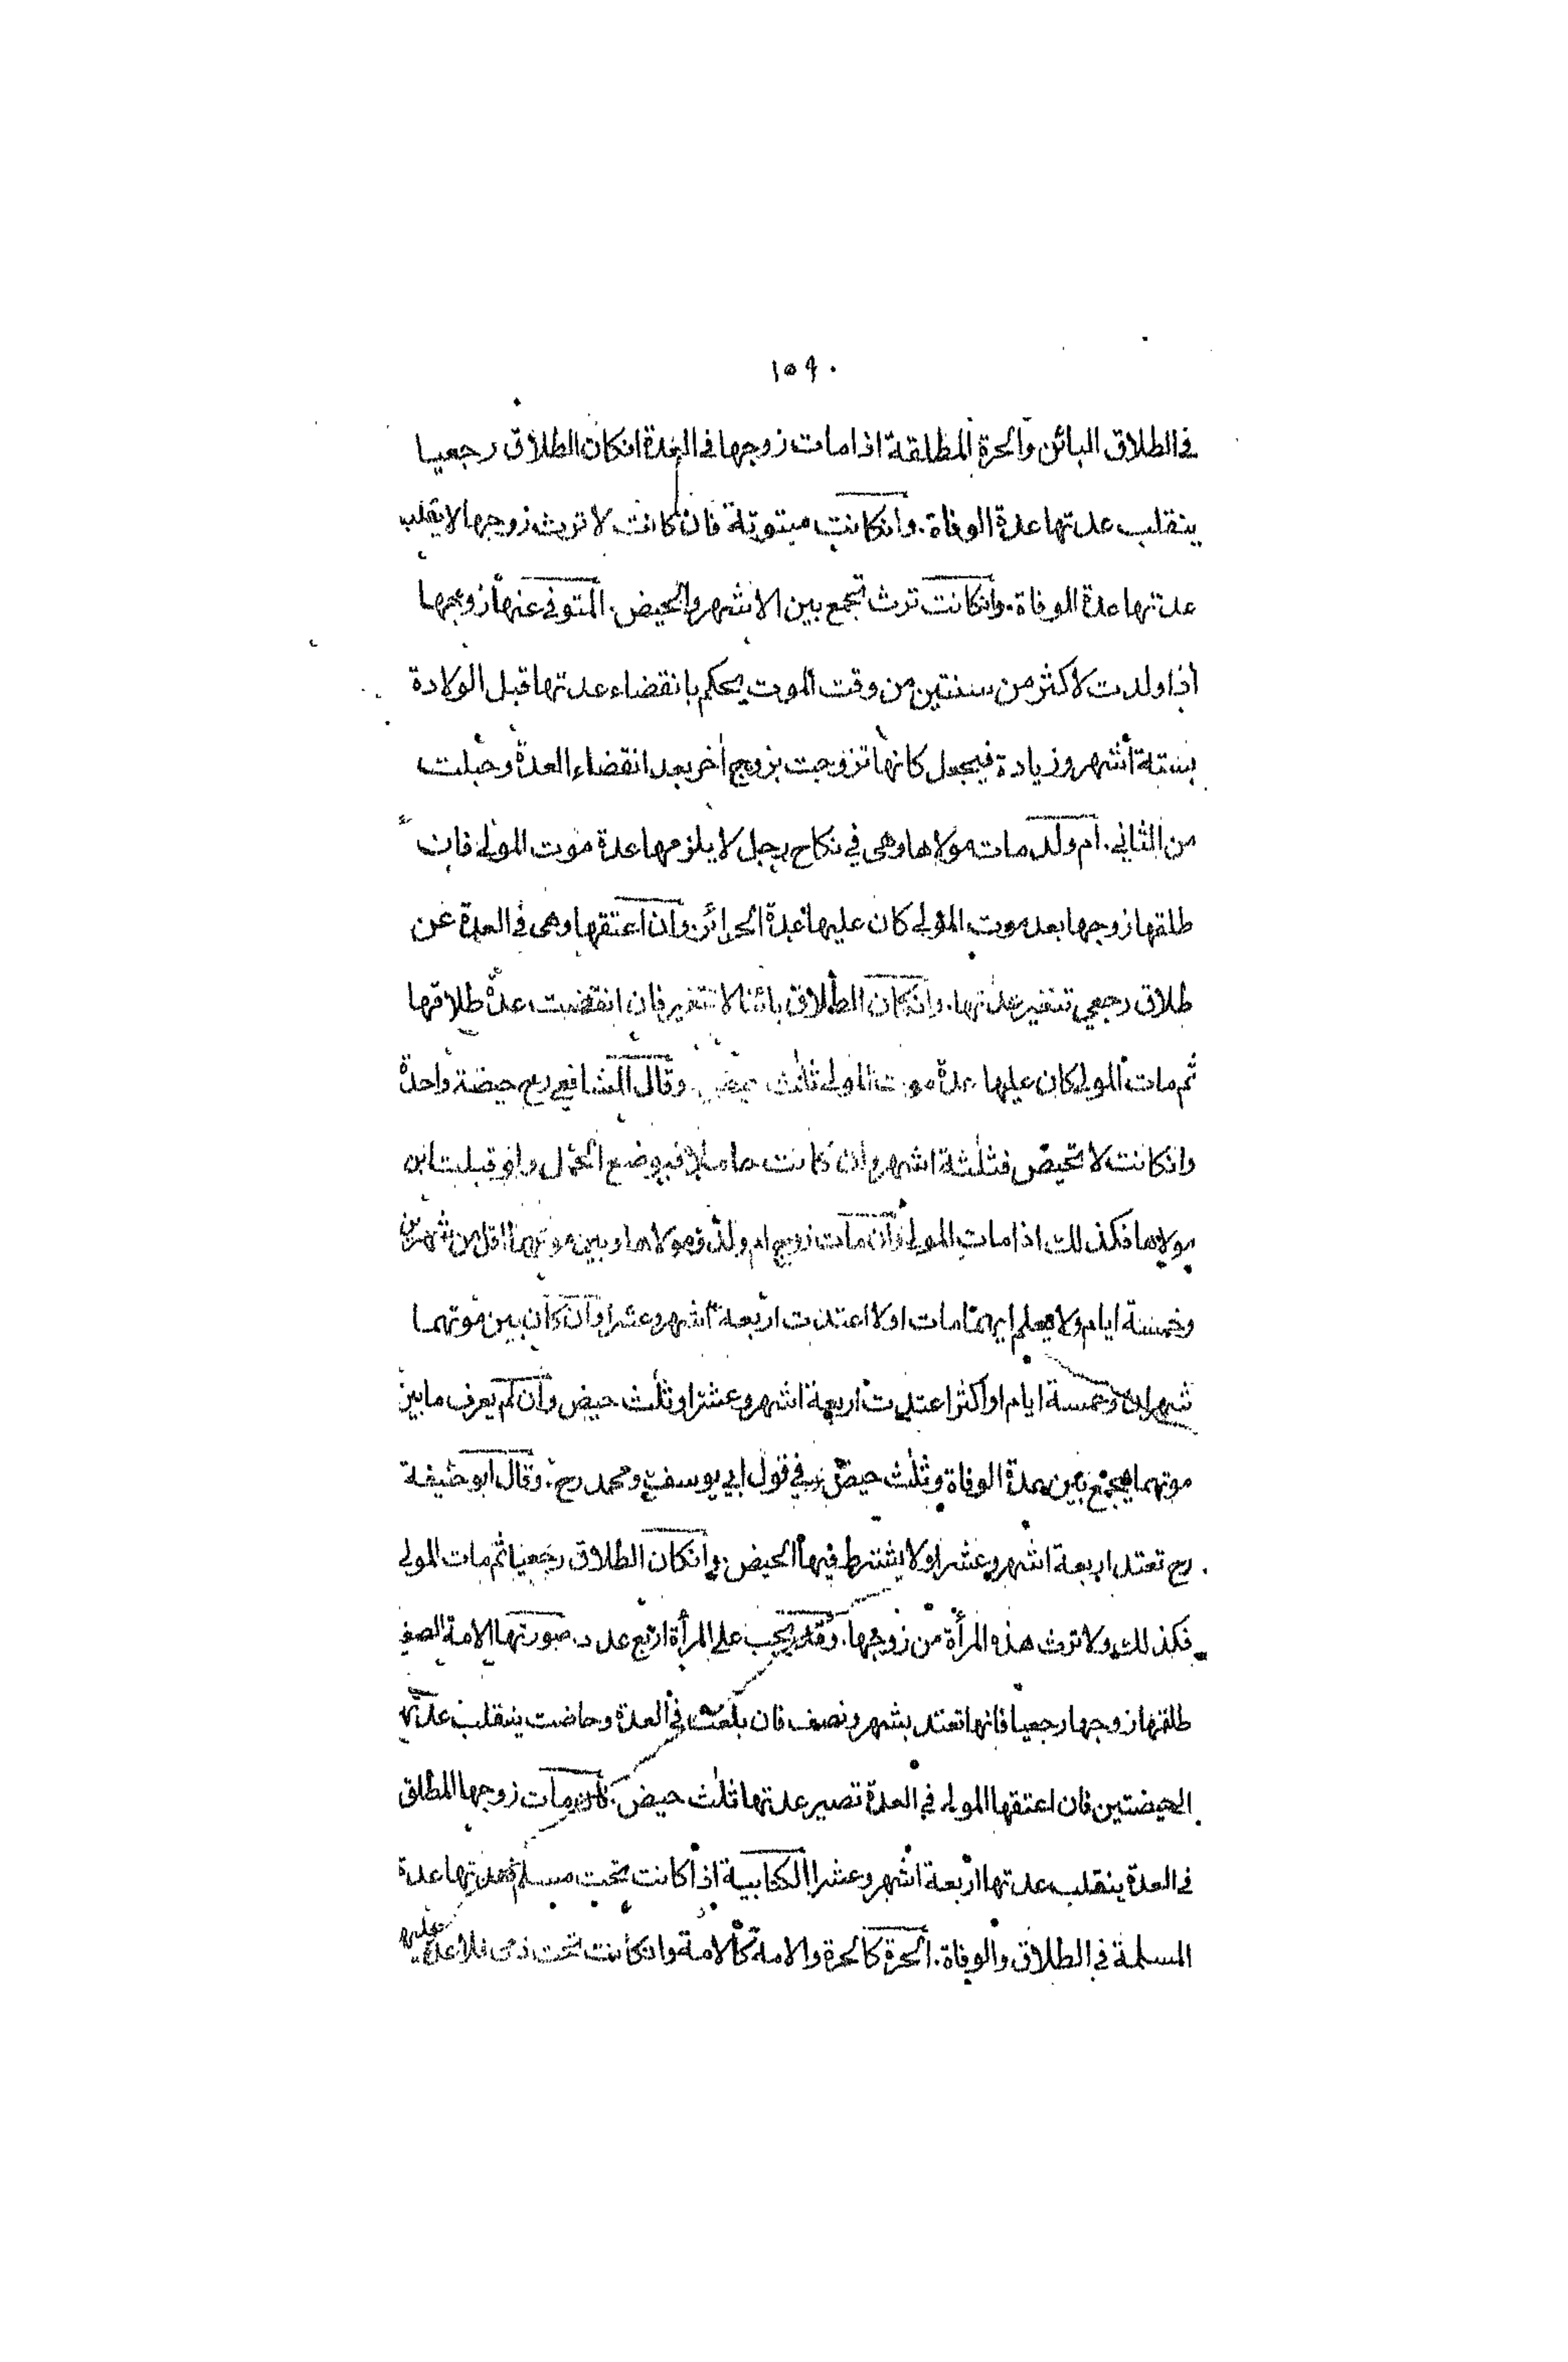 ١٥٩٠
في الطلاق البائن والحرة المطلقة اذا مات زوجها في العدة انكان الطلاق رجعيا
ينقلب عدتها عدة الوفاة. وانكانت مبتوتة فان كانت لا ترث زوجها لا ينقلب
عدتها عدة الوفاة. وانكانت ترث تجمع بين الاشهر والحيض. المتوفى عنها زوجها
اذا ولدت لاكثر من سنتين من وقت الموت يحكم بانقضاء عدتها قبل الولادة
بستة اشهر وزيادة فيجعل كانها تزوجت بزوج اخر بعد انقضاء العدة وحبلت
من الثاني. ام ولد مات مولاها وهى في نكاح رجل لا يلزمها عدة موت المولى فان
طلقها زوجها بعد موت المولى كان عليها عدة الحرائر وان اعتقها وهى في العدة عن
طلاق رجعي تتغير عدتها. وانكان الطلاق بائنا لا تتغير فان انقضت عدة طلاقها
ثم مات المولى كان عليها عدة موت المولى ثلث حيض. وقال الشافعي رح حيضة واحدة
وانكانت لا تحيض فثلثة اشهر وان كانت حاملا فبوضع الحمل ولو قبلت ابن
مولاها فكذلك اذا مات المولى وان مات زوج ام ولد ومولاها وبين موتهما اقل من شهرين
وخمسة ايام ولا يعلم ايهما مات اولا اعتدت اربعة اشهر وعشرا وان كان بين موتهما
شهران وخمسة ايام او اكثر اعتدت اربعة اشهر وعشرا وثلث حيض وان لم يعرف ما بين
موتهما يجمع بين عدة الوفاة وثلث حيض في قول ابي يوسف ومحمد رح. وقال ابو حنيفة
رح تعتد اربعة اشهر وعشرا ولا يشترط فيها الحيض. وانكان الطلاق رجعيا ثم مات المولى
فكذلك ولا ترث هذه المرأة من زوجها. وقد يجب على المرأة اربع عدد. صورتها الامة الصغيرة
طلقها زوجها رجعيا فانها تعتد بشهر ونصف فان بلغت في العدة وحاضت ينقلب عدتها
الحيضتين فان اعتقها المولى في العدة تصير عدتها ثلث حيض. فان مات زوجها المطلق
في العدة ينقلب عدتها اربعة اشهر وعشرا الكتابية اذا كانت تحت مسلم فعدتها عدة
المسلمة في الطلاق والوفاة. الحرة كالحرة والامة كالامة وانكانت تحت ذمى فلا عدة عليها